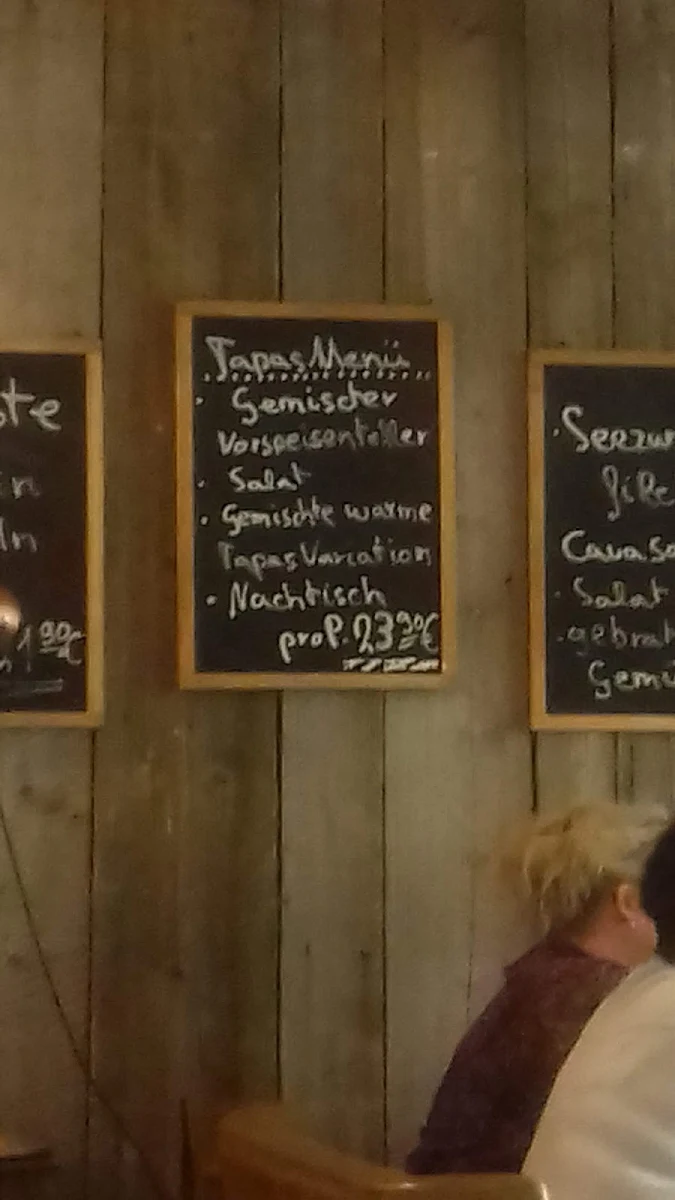 Tapas Menü
· Gemischer
Vorspeisenteller
· Salat
· Gemischte warme
Tapas Variation
· Nachtisch
pro P. 23 90€
Cava So
· Salat
· gebrat
Gemü